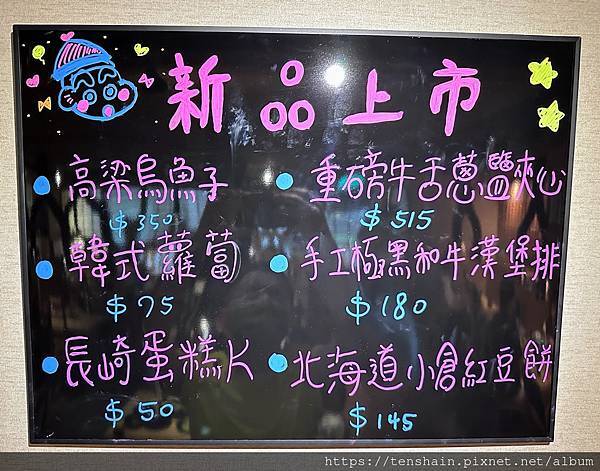 新品上市
高梁烏魚子
$350
韓式蘿蔔
$75
長崎蛋糕片
$50
重磅牛舌蔥鹽夾心
$515
手工極黑和牛漢堡排
$180
北海道小倉紅豆餅
$145
https://tenshain.pixnet.net/album